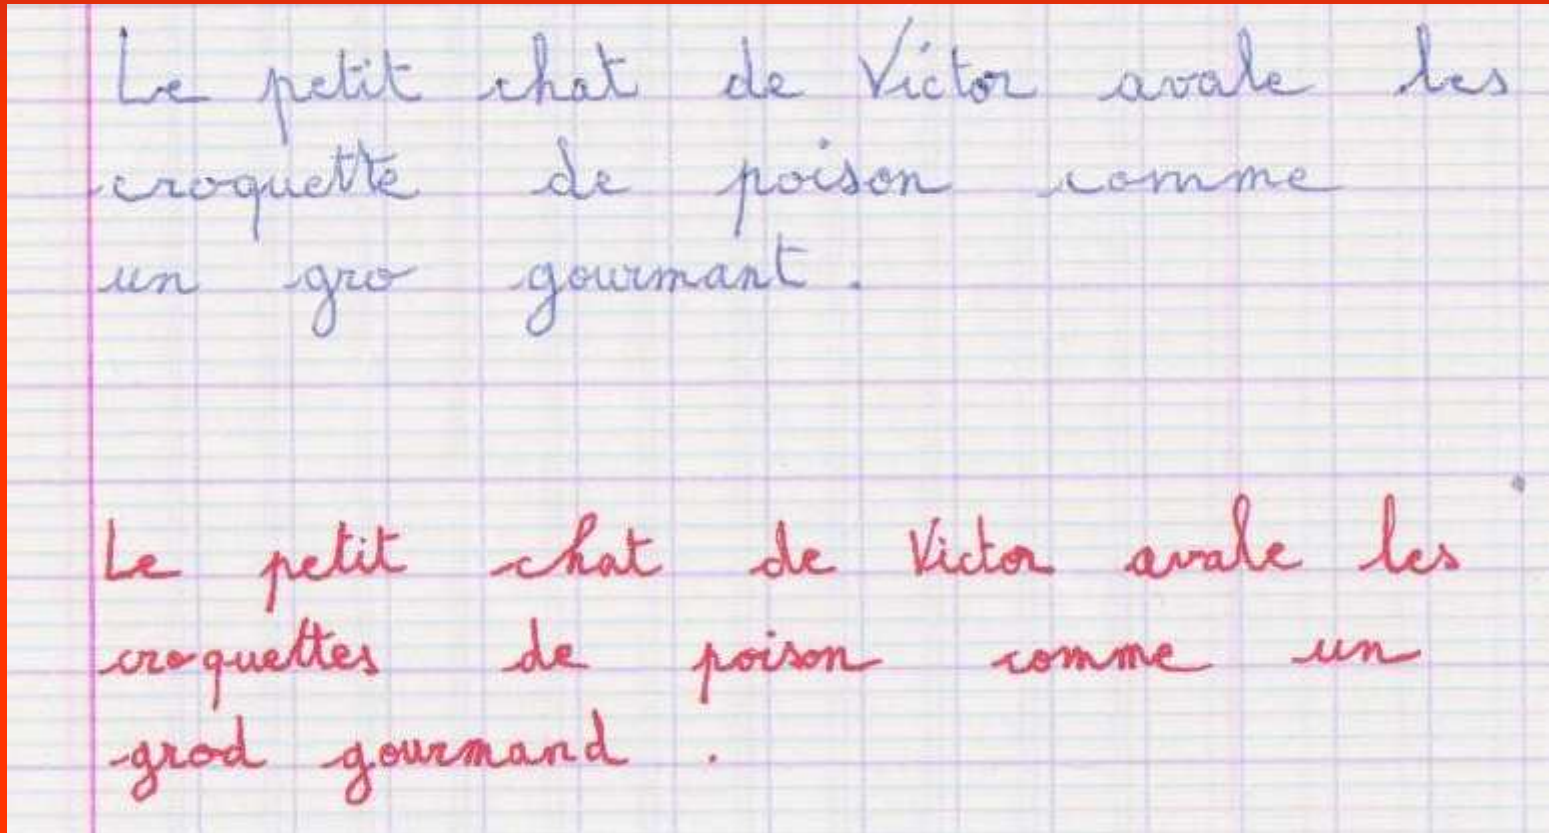 Le petit chat de Victor avale les
croquette de poison comme
un gro gourmant .
Le petit chat de Victor avale les
croquettes de poison comme un
grod gourmand .